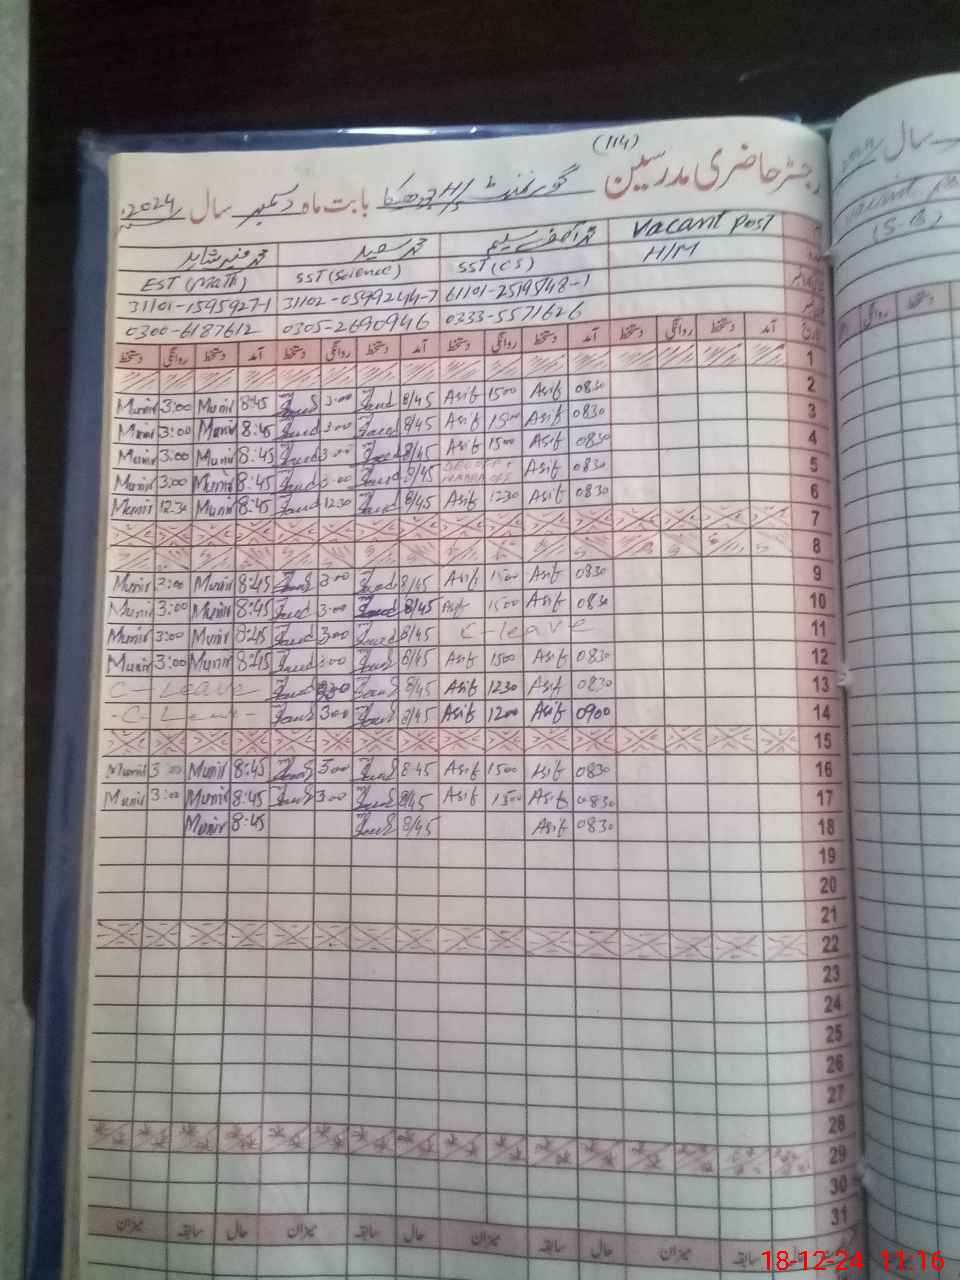 (114)
رجسٹر حاضری مدرسین گورنمنٹ بابت ماہ دسمبر سال 2024ء
Vacant Post محمد آصف سلیم محمد سعید محمد منیر شاہد
H/M SST (CS) SST (Science) EST (Math)
31101-1595927-1 31102-0599244-7 61101-2519848-1
0300-6187612 0305-2690946 0333-5571626
دستخط روانگی دستخط آمد دستخط روانگی دستخط آمد دستخط روانگی دستخط آمد دستخط روانگی دستخط آمد تاریخ
1
Munir 3:00 Munir 8:45 Saeed 3:00 Saeed 8/45 Asif 1500 Asif 0830 2
Munir 3:00 Munir 8:45 Saeed 3:00 Saeed 8/45 Asif 1500 Asif 0830 3
Munir 3:00 Munir 8:45 Saeed 3:00 Saeed 8/45 Asif 1500 Asif 0830 4
Munir 3:00 Munir 8:45 Saeed 3:00 Saeed 8/45 Asif 0830 5
Munir 12:30 Munir 8:45 Saeed 12:30 Saeed 8/45 Asif 1230 Asif 0830 6
7
8
Munir 3:00 Munir 8:45 Saeed 3:00 Saeed 8/45 Asif 1500 Asif 0830 9
Munir 3:00 Munir 8:45 Saeed 3:00 Saeed 8/45 Asif 1500 Asif 0830 10
Munir 3:00 Munir 8:45 Saeed 3:00 Saeed 8/45 C-leave 11
Munir 3:00 Munir 8:45 Saeed 3:00 Saeed 8/45 Asif 1500 Asif 0830 12
C-Leave Saeed Saeed 8/45 Asif 1230 Asif 0830 13
C-Leave Saeed 3:00 Saeed 8/45 Asif 1200 Asif 0900 14
15
Munir 3:00 Munir 8:45 Saeed 3:00 Saeed 8:45 Asif 1500 Asif 0830 16
Munir 3:00 Munir 8:45 Saeed 3:00 Saeed 8/45 Asif 1500 Asif 0830 17
Munir 8:45 Saeed 8/45 Asif 0830 18
19
20
21
22
23
24
25
26
27
28
29
30
31
میزان سابقہ حال میزان سابقہ حال میزان سابقہ حال میزان سابقہ حال
سال
Vacant Po
(S-B)
روانگی دستخط
18-12-24 11:16